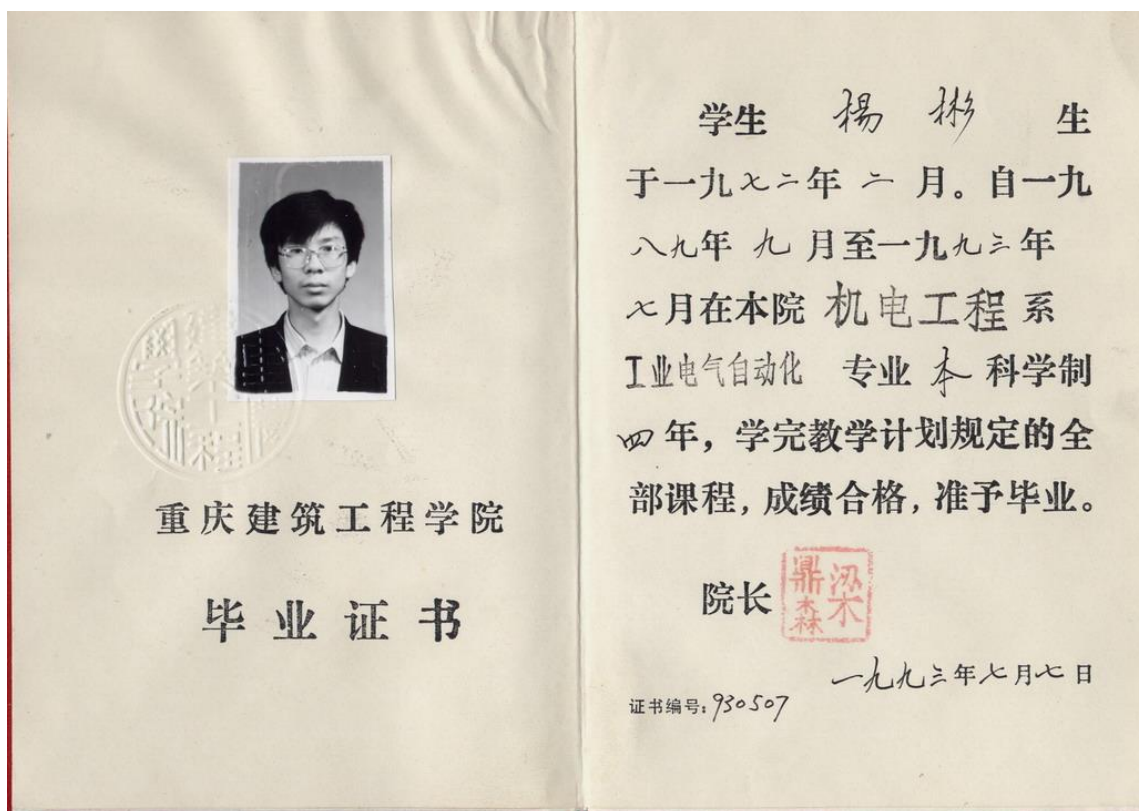 重庆建筑工程学院
毕业证书
学生 楊彬 生
于一九七二年二月。自一九
八九年九月至一九九三年
七月在本院机电工程系
工业电气自动化 专业本科学制
四年，学完教学计划规定的全
部课程，成绩合格，准予毕业。
院长 梁鼎森
一九九三年七月七日
证书编号：930507